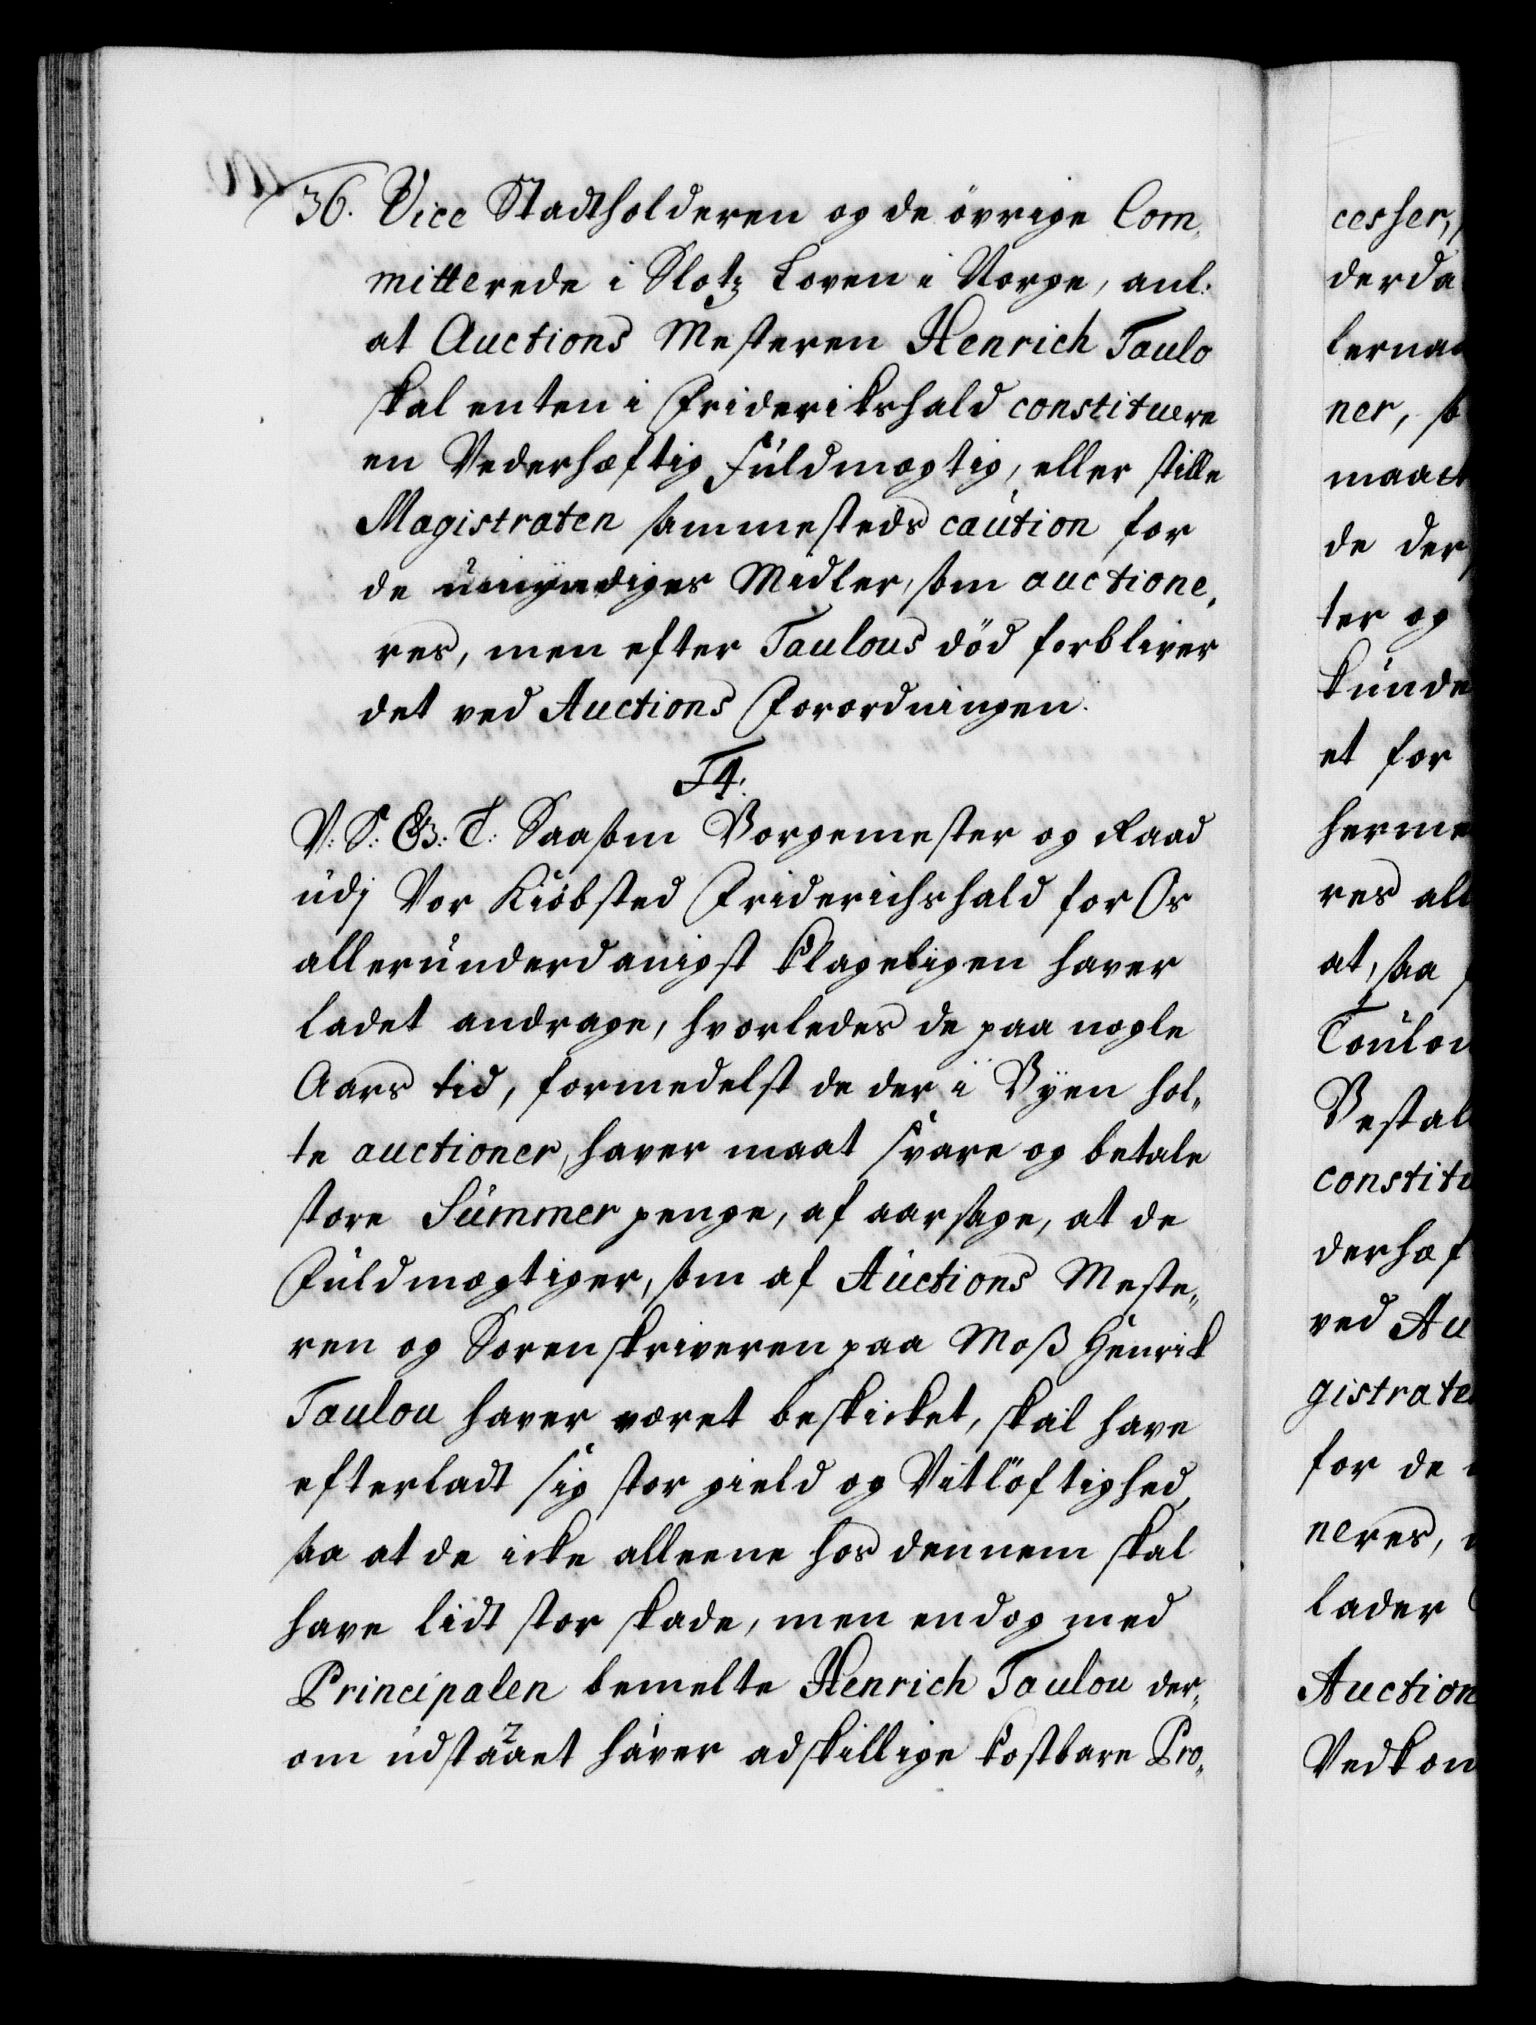 36. Vice Stadtholderen og de övrige Com,
mitterede i Slotz Loven i Norge, anl:
at Auctions Mesteren Henrich Taulo
skal enten i Friderikshald constituere
en Vederhæftig Fuldmægtig, eller stille
Magistraten sammesteds caution for
de umyndiges Midler, som auctione,
res, men efter Taulous död forbliver
det ved Auctions Forordningen.
F4:
V: S: G: T: Saasom Borgemester og Raad
udj Vor Kiöbsted Friderichshald for Os
allerunderdanigst klageligen haver
ladet andrage, hvorledes de paa nogle
Aars tid, formedelst de der i Byen hol,
te auctioner, haver maat svare og betale
store Summer penge, af aarsage, at de
Fuldmægtiger, som af Auctions Meste,
ren og Sorenskriveren paa Moss Henrik
Taulou haver været beskicket, skal have
efterladt sig stor gield og Vitlöftighed,
saa at de icke alleene hos dennem skal
have lidt stor skade, men endog med
Principalen bemelte Henrich Taulou der,
om udstaaet haver adskillige kostbare Pro,
cesser,
derda
lerna
ner, s
maa
de der
ter og
kunde
et for
herme
res all
at, saa
Toulou
Bestal
constitu
derhæf
ved Au
gistrate
for de
neres,
lader
Auction
Vedkom